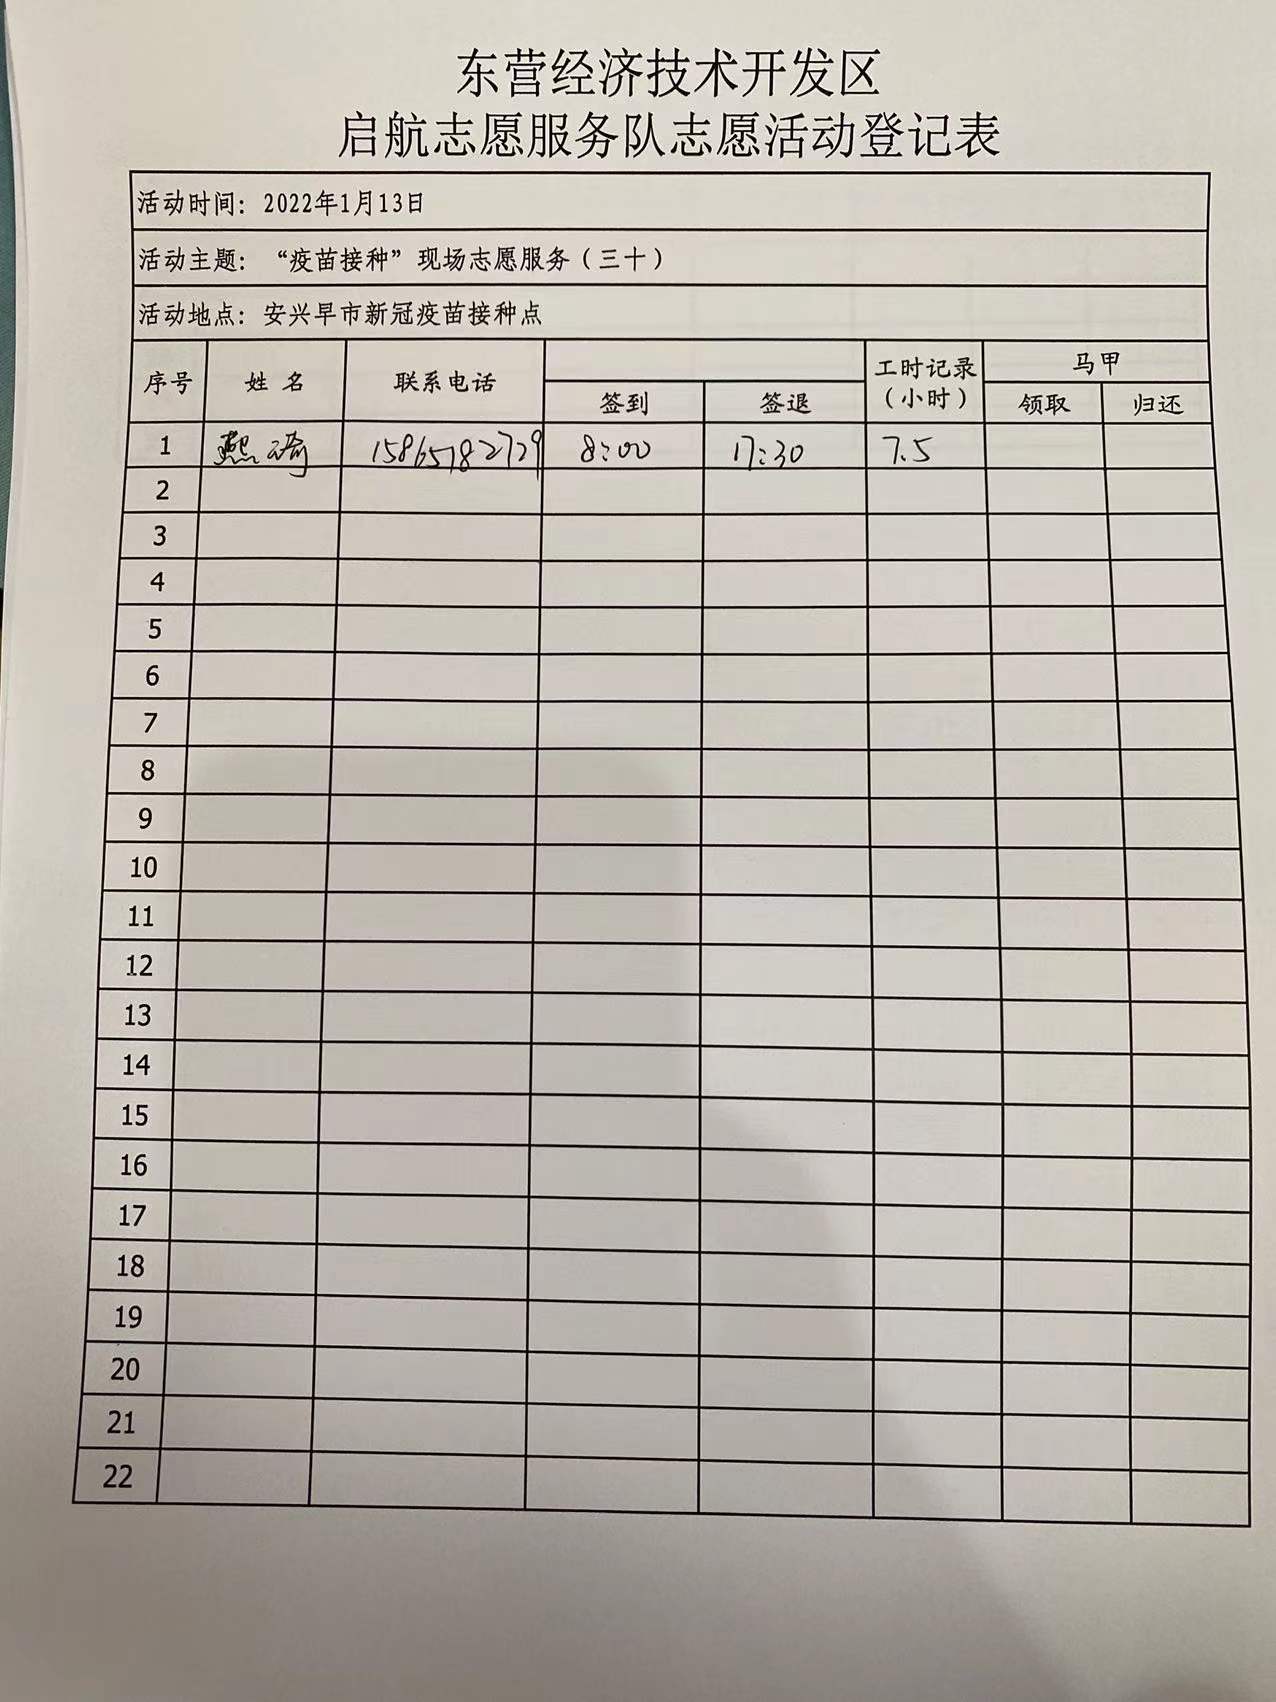 东营经济技术开发区
启航志愿服务队志愿活动登记表
活动时间：2022年1月13日
活动主题：“疫苗接种”现场志愿服务（三十）
活动地点：安兴早市新冠疫苗接种点
序号 姓名 联系电话 签到 签退 工时记录（小时） 马甲 领取 归还
1 15865782729 8:00 17:30 7.5
2
3
4
5
6
7
8
9
10
11
12
13
14
15
16
17
18
19
20
21
22